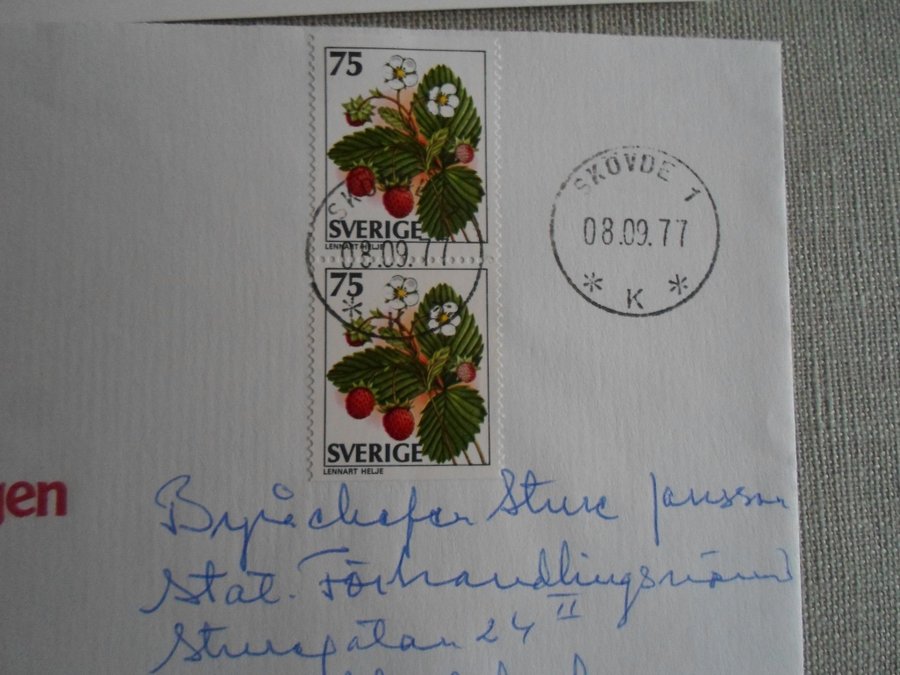 75
SVERIGE
LENNART HELJE
SKÖVDE 1
08.09.77
K
08.09.77
K
75
SVERIGE
LENNART HELJE
gen
Byråchefen Sture Jansson
Stat. Förhandlingsnämnd
Sturegatan 24 II